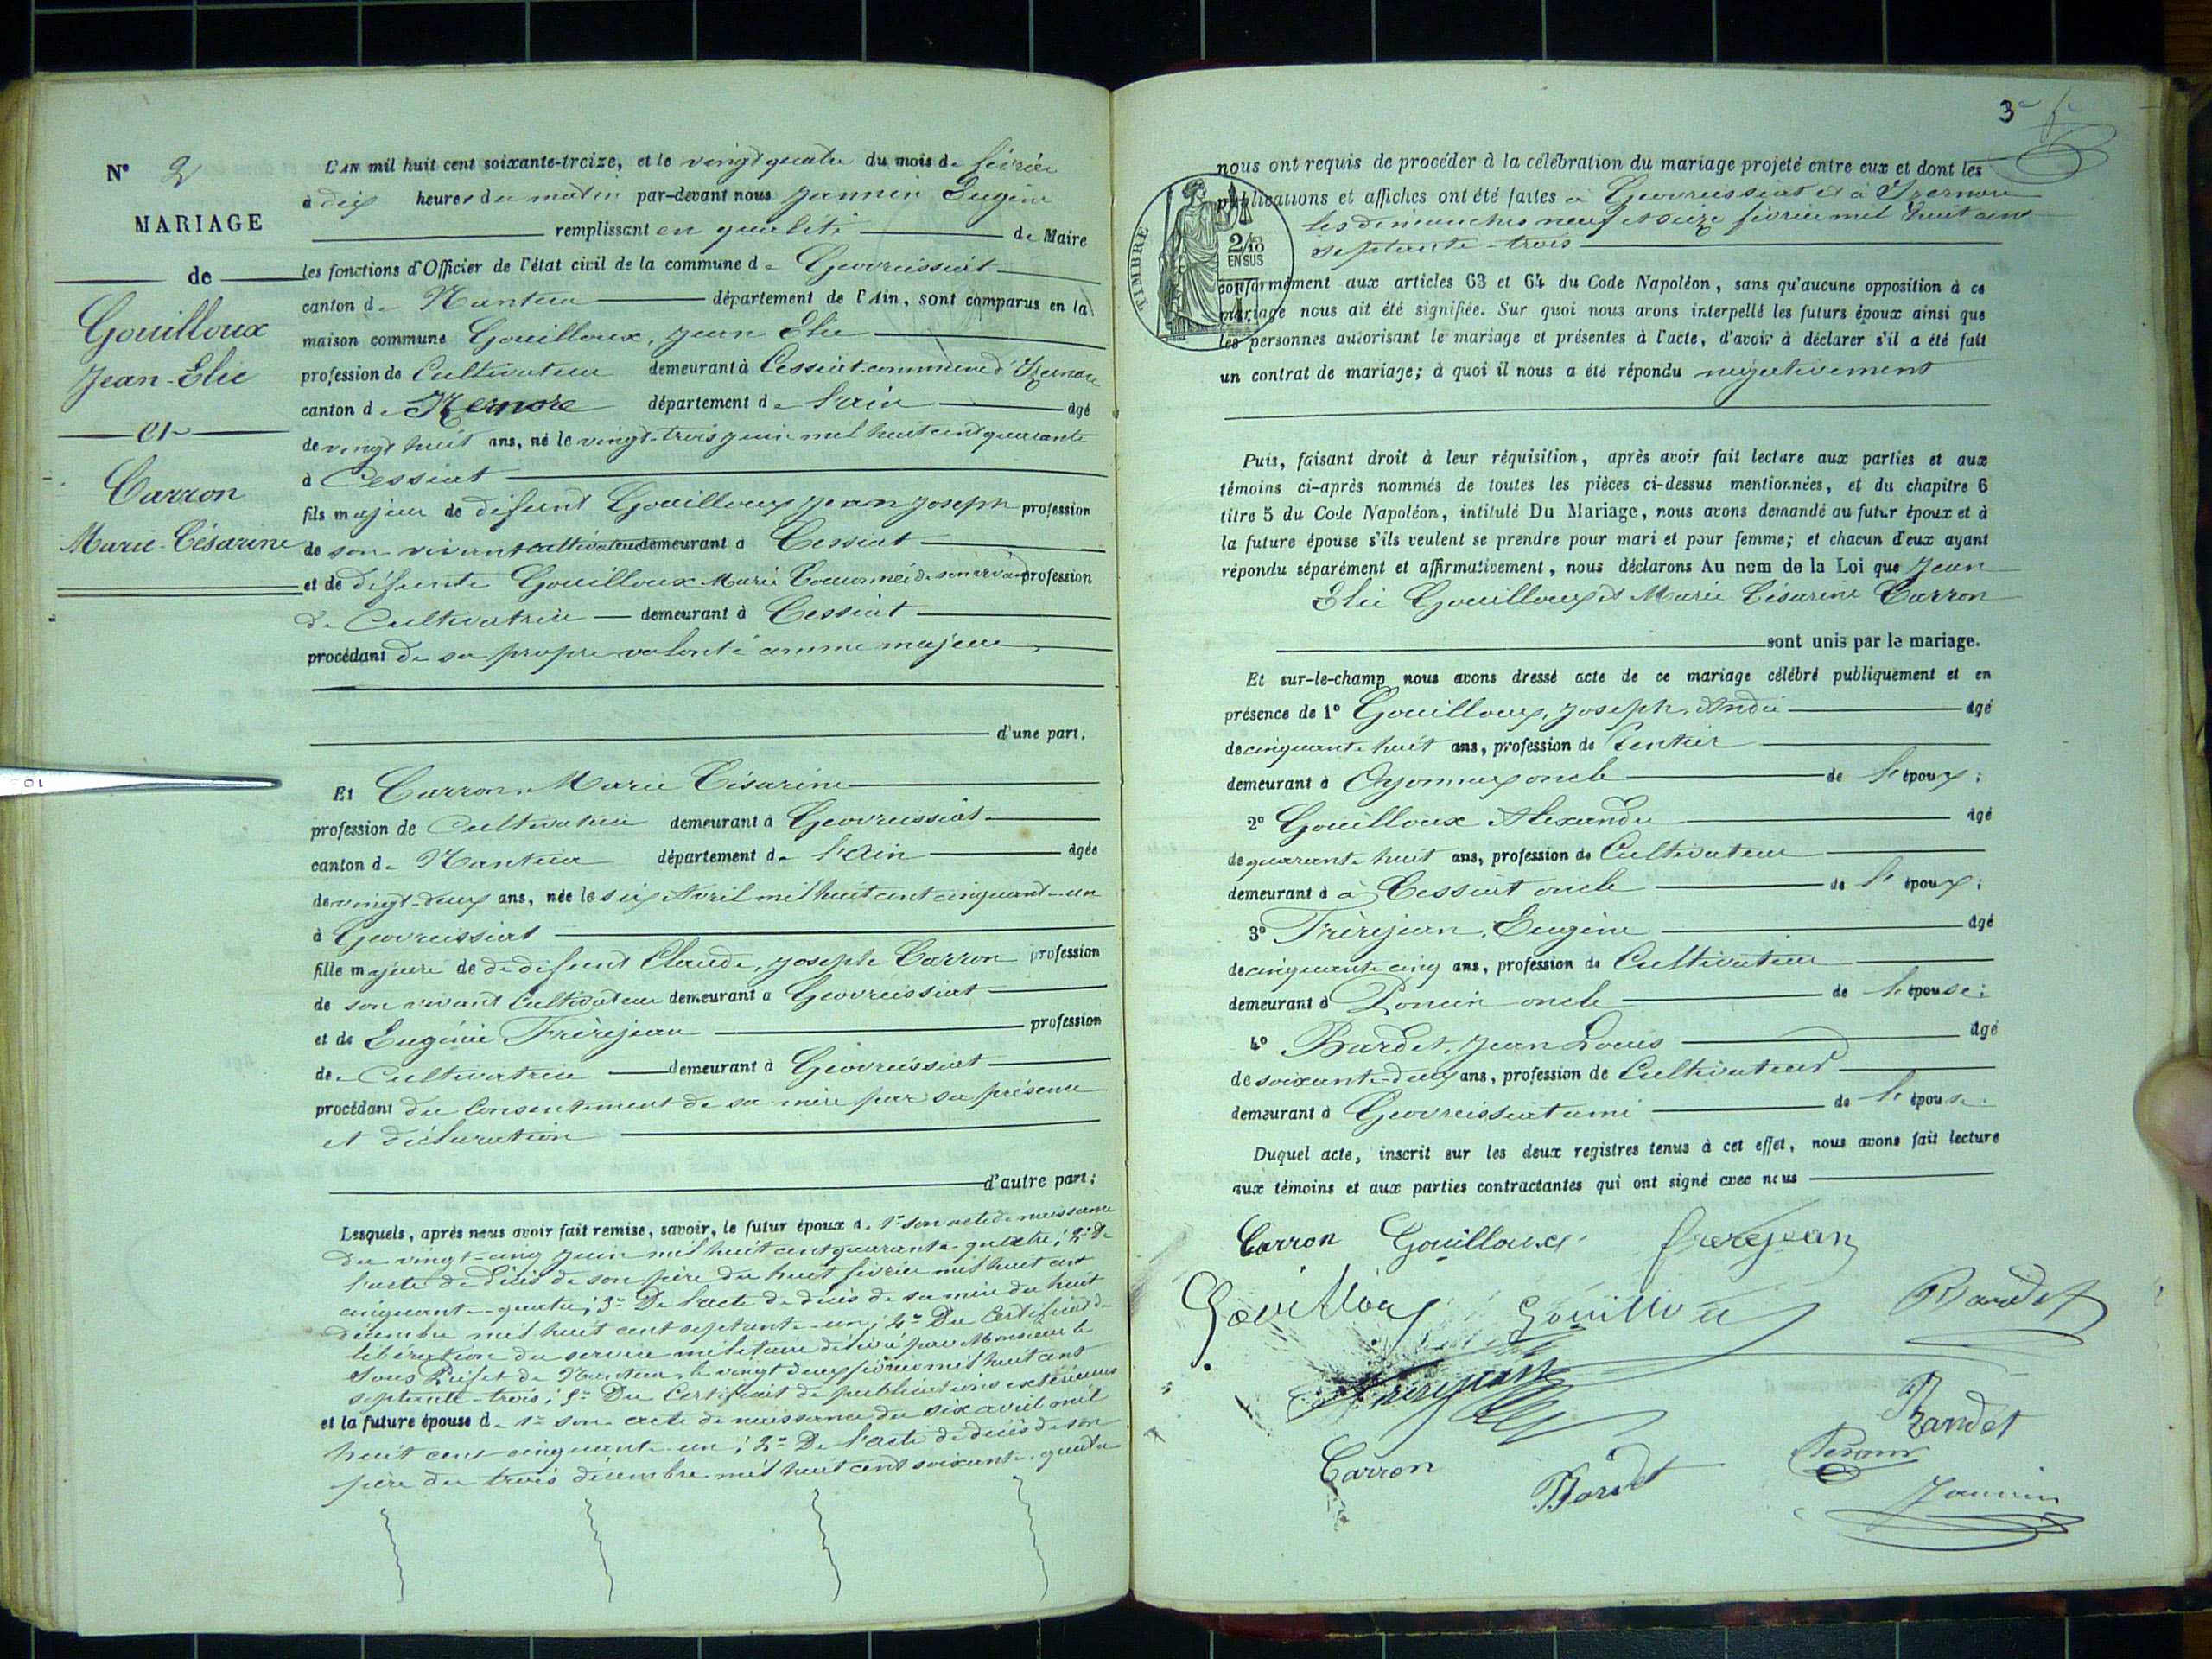 N° 2
MARIAGE
de
Gouilloux
Jean-Elie
et
Carron
Marie-Césarine
L'AN mil huit cent soixante-treize, et le vingt quatre du mois de février
à dix heures du matin par-devant nous Jannin Eugène
remplissant en qualité de Maire
les fonctions d'Officier de l'état civil de la commune de Geovreissiat
canton de Nantua département de l'Ain, sont comparus en la
maison commune Gouilloux, Jean Elie
profession de Cultivateur demeurant à Cessiat commune d'Izernore
canton d'Izernore département de l'ain âgé
de vingt huit ans, né le vingt-trois juin mil huit cent quarante
à Cessiat
fils majeur de défunt Gouilloux Jean Joseph profession
de son vivant cultivateur demeurant à Cessiat
et de défunte Gouilloux Marie de son vivant profession
de Cultivatrice demeurant à Cessiat
procédant de sa propre volonté comme majeur
d'une part.
Et Carron, Marie Césarine
profession de Cultivatrice demeurant à Geovreissiat
canton de Nantua département de l'Ain âgée
de vingt-deux ans, née le six Avril mil huit cent cinquante-un
à Geovreissiat
fille majeure de de défunt Claude, Joseph Carron profession
de son vivant Cultivateur demeurant à Geovreissiat
et de Eugénie Frèrejean profession
de Cultivatrice demeurant à Geovreissiat
procédant du Consentement de sa mère par sa présence
et déclaration
d'autre part;
Lesquels, après nous avoir fait remise, savoir, le futur époux d. 1° son acte de naissance
du vingt-cinq juin mil huit cent quarante-quatre; 2° De
l'acte de décès de son père du huit février mil huit cent
cinquante-quatre; 3° De l'acte de décès de sa mère du huit
décembre mil huit cent septante-un; 4° Du Certificat de
libération du service militaire délivré par Monsieur le
Sous Préfet de Nantua, le vingt deux février mil huit cent
septante-trois; 5° Du Certificat de publications extérieures
et la future épouse d. 1° son acte de naissance du six avril mil
huit cent cinquante-un; 2° De l'acte de décès de son
père du trois décembre mil huit cent soixante-quatre
3e
nous ont requis de procéder à la célébration du mariage projeté entre eux et dont les
publications et affiches ont été faites à Geovreissiat et à Izernore
les dimanches neuf et seize février mil huit cent
septante-trois
TIMBRE
2/10
EN SUS
conformément aux articles 63 et 64 du Code Napoléon, sans qu'aucune opposition à ce
mariage nous ait été signifiée. Sur quoi nous avons interpellé les futurs époux ainsi que
les personnes autorisant le mariage et présentes à l'acte, d'avoir à déclarer s'il a été fait
un contrat de mariage; à quoi il nous a été répondu négativement
Puis, faisant droit à leur réquisition, après avoir fait lecture aux parties et aux
témoins ci-après nommés de toutes les pièces ci-dessus mentionnées, et du chapitre 6
titre 5 du Code Napoléon, intitulé Du Mariage, nous avons demandé au futur époux et à
la future épouse s'ils veulent se prendre pour mari et pour femme; et chacun d'eux ayant
répondu séparément et affirmativement, nous déclarons Au nom de la Loi que Jean
Elie Gouilloux et Marie Césarine Carron
sont unis par le mariage.
Et sur-le-champ nous avons dressé acte de ce mariage célébré publiquement et en
présence de 1° Gouilloux, Joseph, André âgé
de cinquante huit ans, profession de Rentier
demeurant à Oyonnax oncle de l'époux;
2° Gouilloux Alexandre âgé
de quarante huit ans, profession de Cultivateur
demeurant à à Cessiat oncle de l'époux;
3° Frèrejean, Eugène âgé
de cinquante cinq ans, profession de Cultivateur
demeurant à Poncin oncle de l'épouse;
4° Bardet, Jean Louis âgé
de soixante-deux ans, profession de Cultivateur
demeurant à Geovreissiat ami de l'épouse.
Duquel acte, inscrit sur les deux registres tenus à cet effet, nous avons fait lecture
aux témoins et aux parties contractantes qui ont signé avec nous
Carron Gouilloux frerejean
Gouilloux Gouilloux Bardet
Frerejean
Bardet
Carron Bardet
Jannin